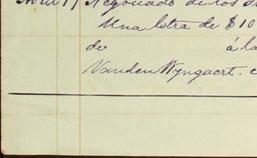 Abril 17 Negociado de los
Una letra de $10
de á la
Vanden Wyngaert.